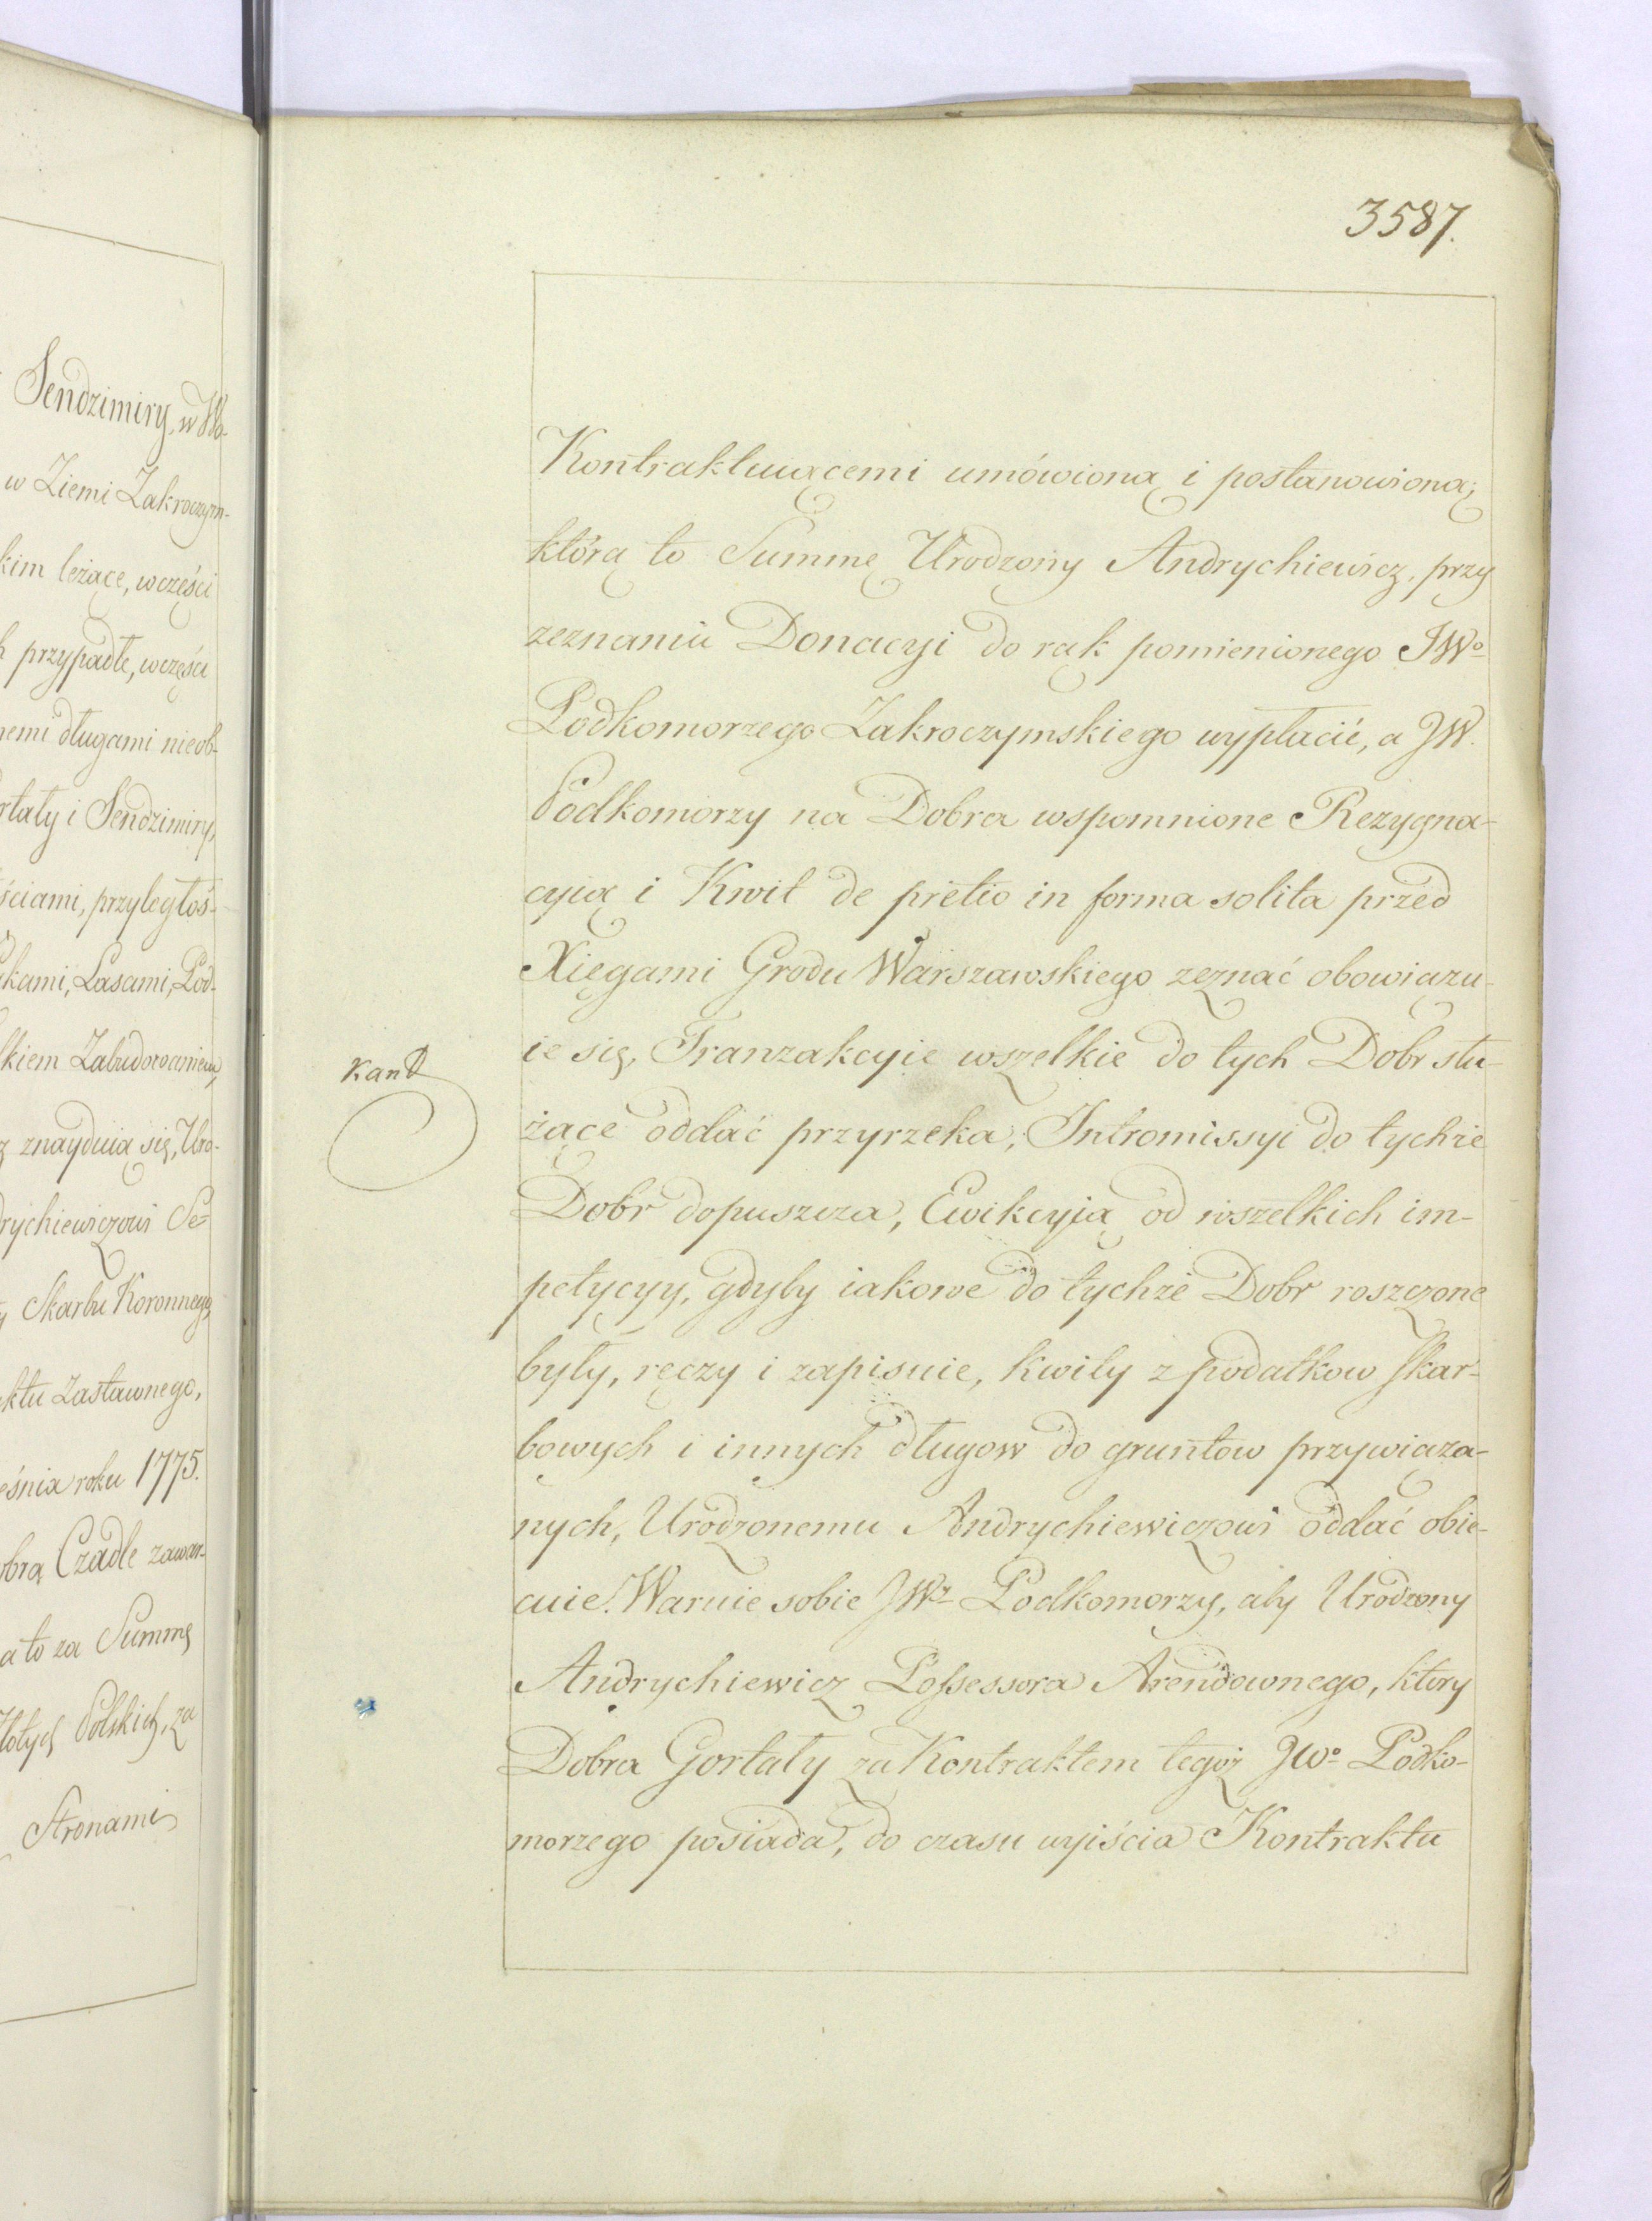 Sendzimiry, w Wo-
w Ziemi Zakroczym-
kim leżące, w części
przypadłe, w części
nemi długami nieob-
rtaty i Sendzimiry,
ściami, przyległoś-
kami, Lasami, Pod-
kiem Zabudowaniem,
znayduią się, Uro-
drychiewiczowi Se-
Skarbu Koronnego,
ktu Zastawnego,
eśnia roku 1775.
obra Czadle zawar-
a to za Summę
Złotych Polskich, za
Stronami
3587.
Kontraktuiącemi umówioną i postanowioną;
którą to Summę Urodzony Andrychiewicz, przy
zeznaniu Donacyi do rąk pomienionego JWo
Podkomorzego Zakroczymskiego wypłacić, a JW.
Podkomorzy na Dobra wspomnione Rezygna-
cyią i Kwit de pretio in forma solita przed
Xięgami Grodu Warszawskiego zeznać obowiązu-
ie się, Tranzakcyie wszelkie do tych Dobr słu-
żące oddać przyrzeka, Intromissyi do tychże
Dobr dopuszcza, Ewikcyią od wszelkich im-
petycyy, gdyby iakowe do tychże Dobr roszczone
były, ręczy i zapisuie, kwity z podatkow skar-
bowych i innych długow do gruntow przywiąza-
nych, Urodzonemu Andrychiewiczowi oddać obie-
cuie. Waruie sobie JWz Podkomorzy, aby Urodzony
Andrychiewicz Possessora Arendownego, ktory
Dobra Gortaty za Kontraktem tegoż JWo Podko-
morzego posiada, do czasu wyiścia Kontraktu
Kant